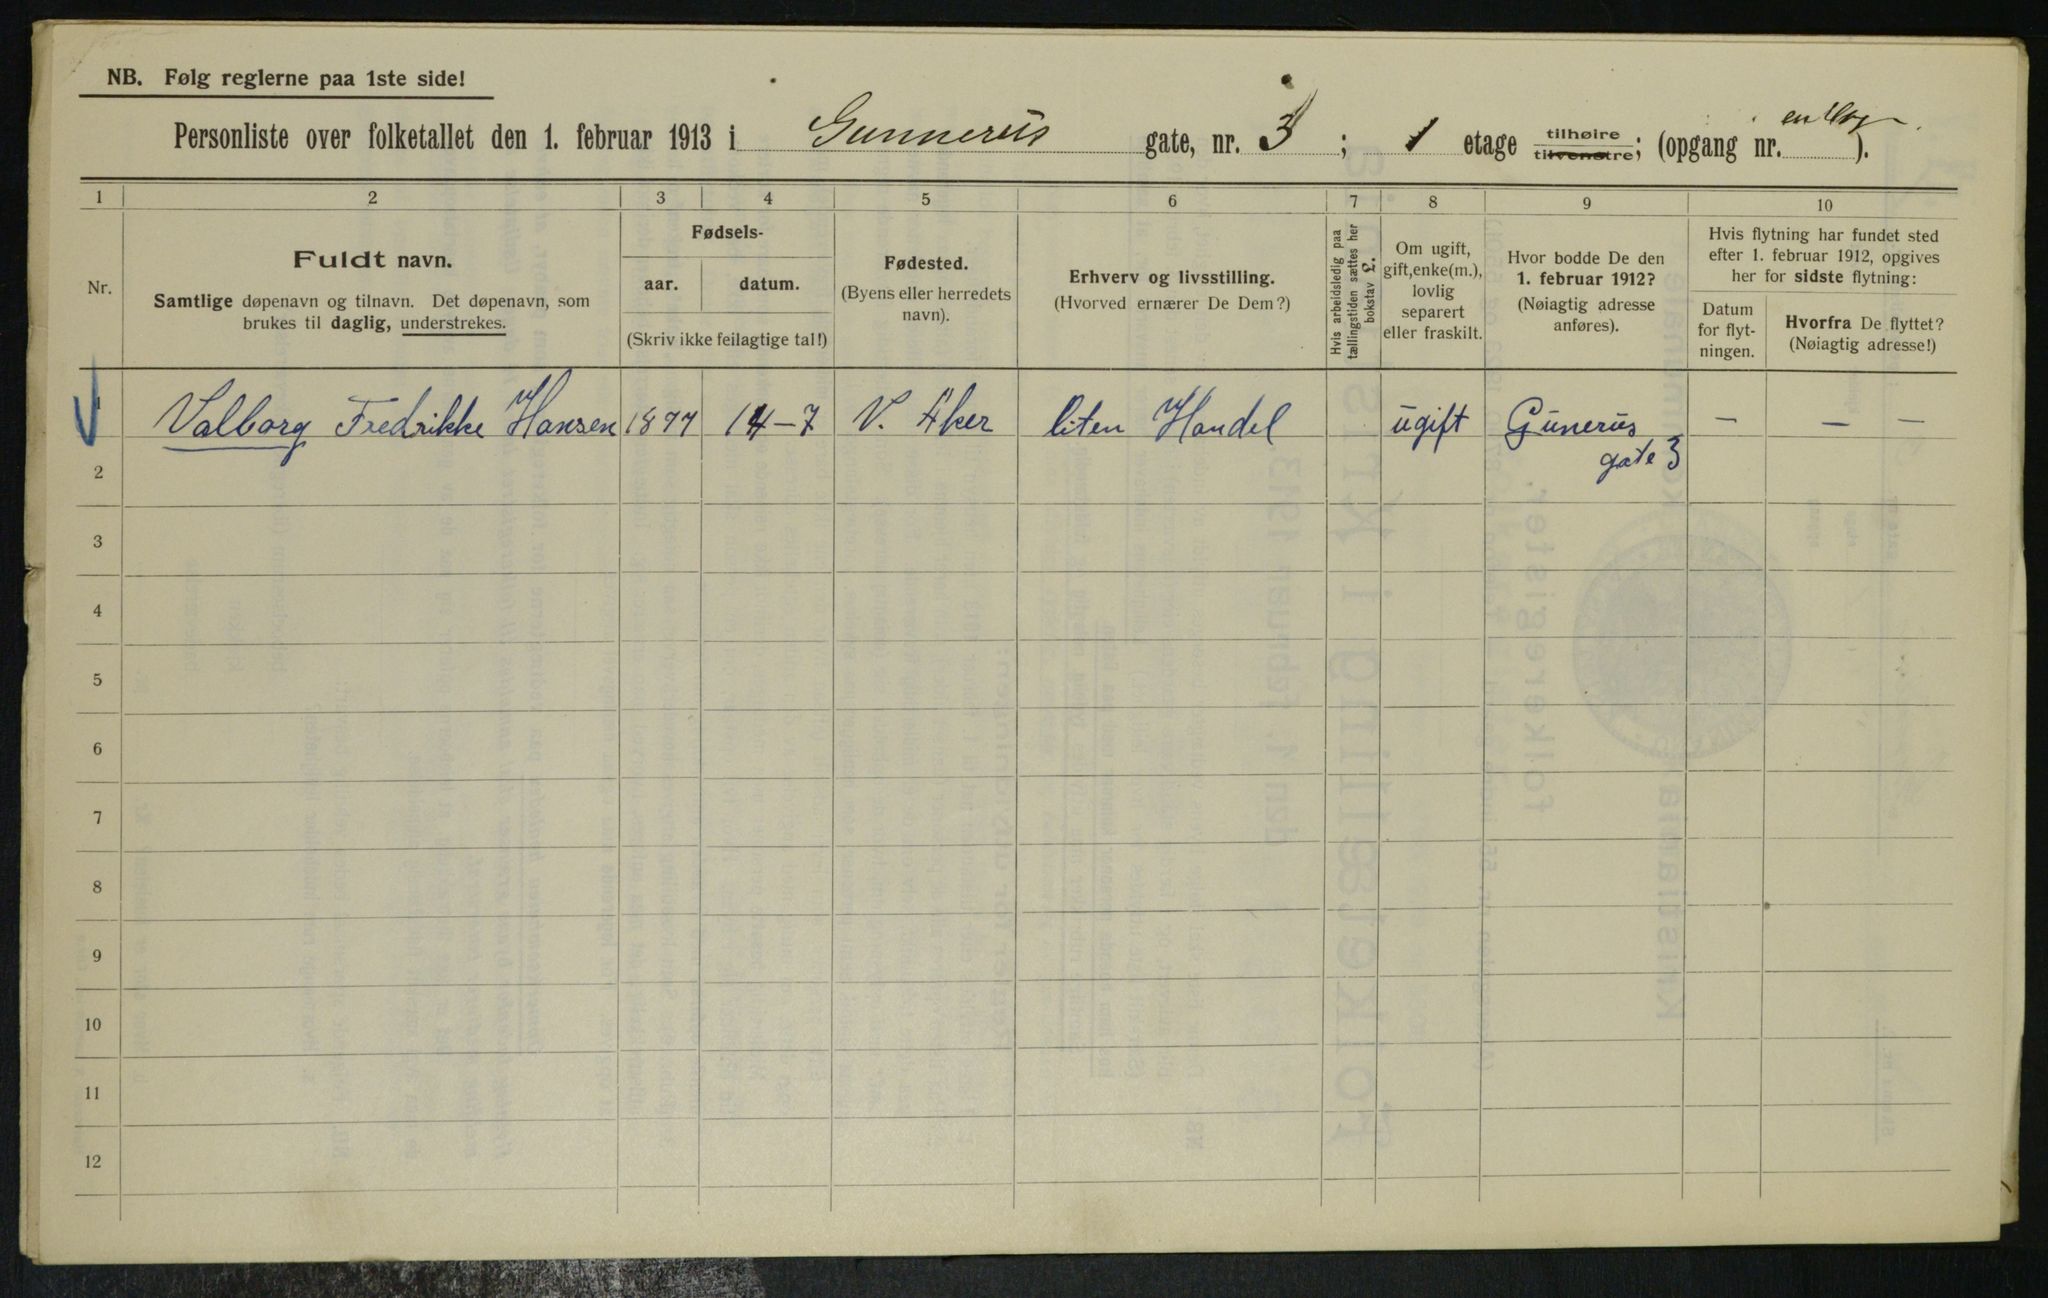 NB. Følg reglerne paa 1ste side!
Personliste over folketallet den 1. februar 1913 i Gunnerus gate, nr. 3 ; 1 etage tilhøire tilvenstre; (opgang nr. ).
1 2 3 4 5 6 7 8 9 10
Nr.
Fuldt navn.
Samtlige døpenavn og tilnavn. Det døpenavn, som
brukes til daglig, understrekes.
Fødsels-
aar. datum.
(Skriv ikke feilagtige tal!)
Fødested.
(Byens eller herredets
navn).
Erhverv og livsstilling.
(Hvorved ernærer De Dem?)
Hvis arbeidsledig paa
tællingstiden sættes her
bokstav L.
Om ugift,
gift, enke(m.),
lovlig
separert
eller fraskilt.
Hvor bodde De den
1. februar 1912?
(Nøiagtig adresse
anføres).
Hvis flytning har fundet sted
efter 1. februar 1912, opgives
her for sidste flytning:
Datum
for flyt-
ningen.
Hvorfra De flyttet?
(Nøiagtig adresse!)
1 Valborg Fredrikke Hansen 1877 14-7 V. Aker liten Handel ugift Gunerus — — —
gate 3
2
3
4
5
6
7
8
9
10
11
12